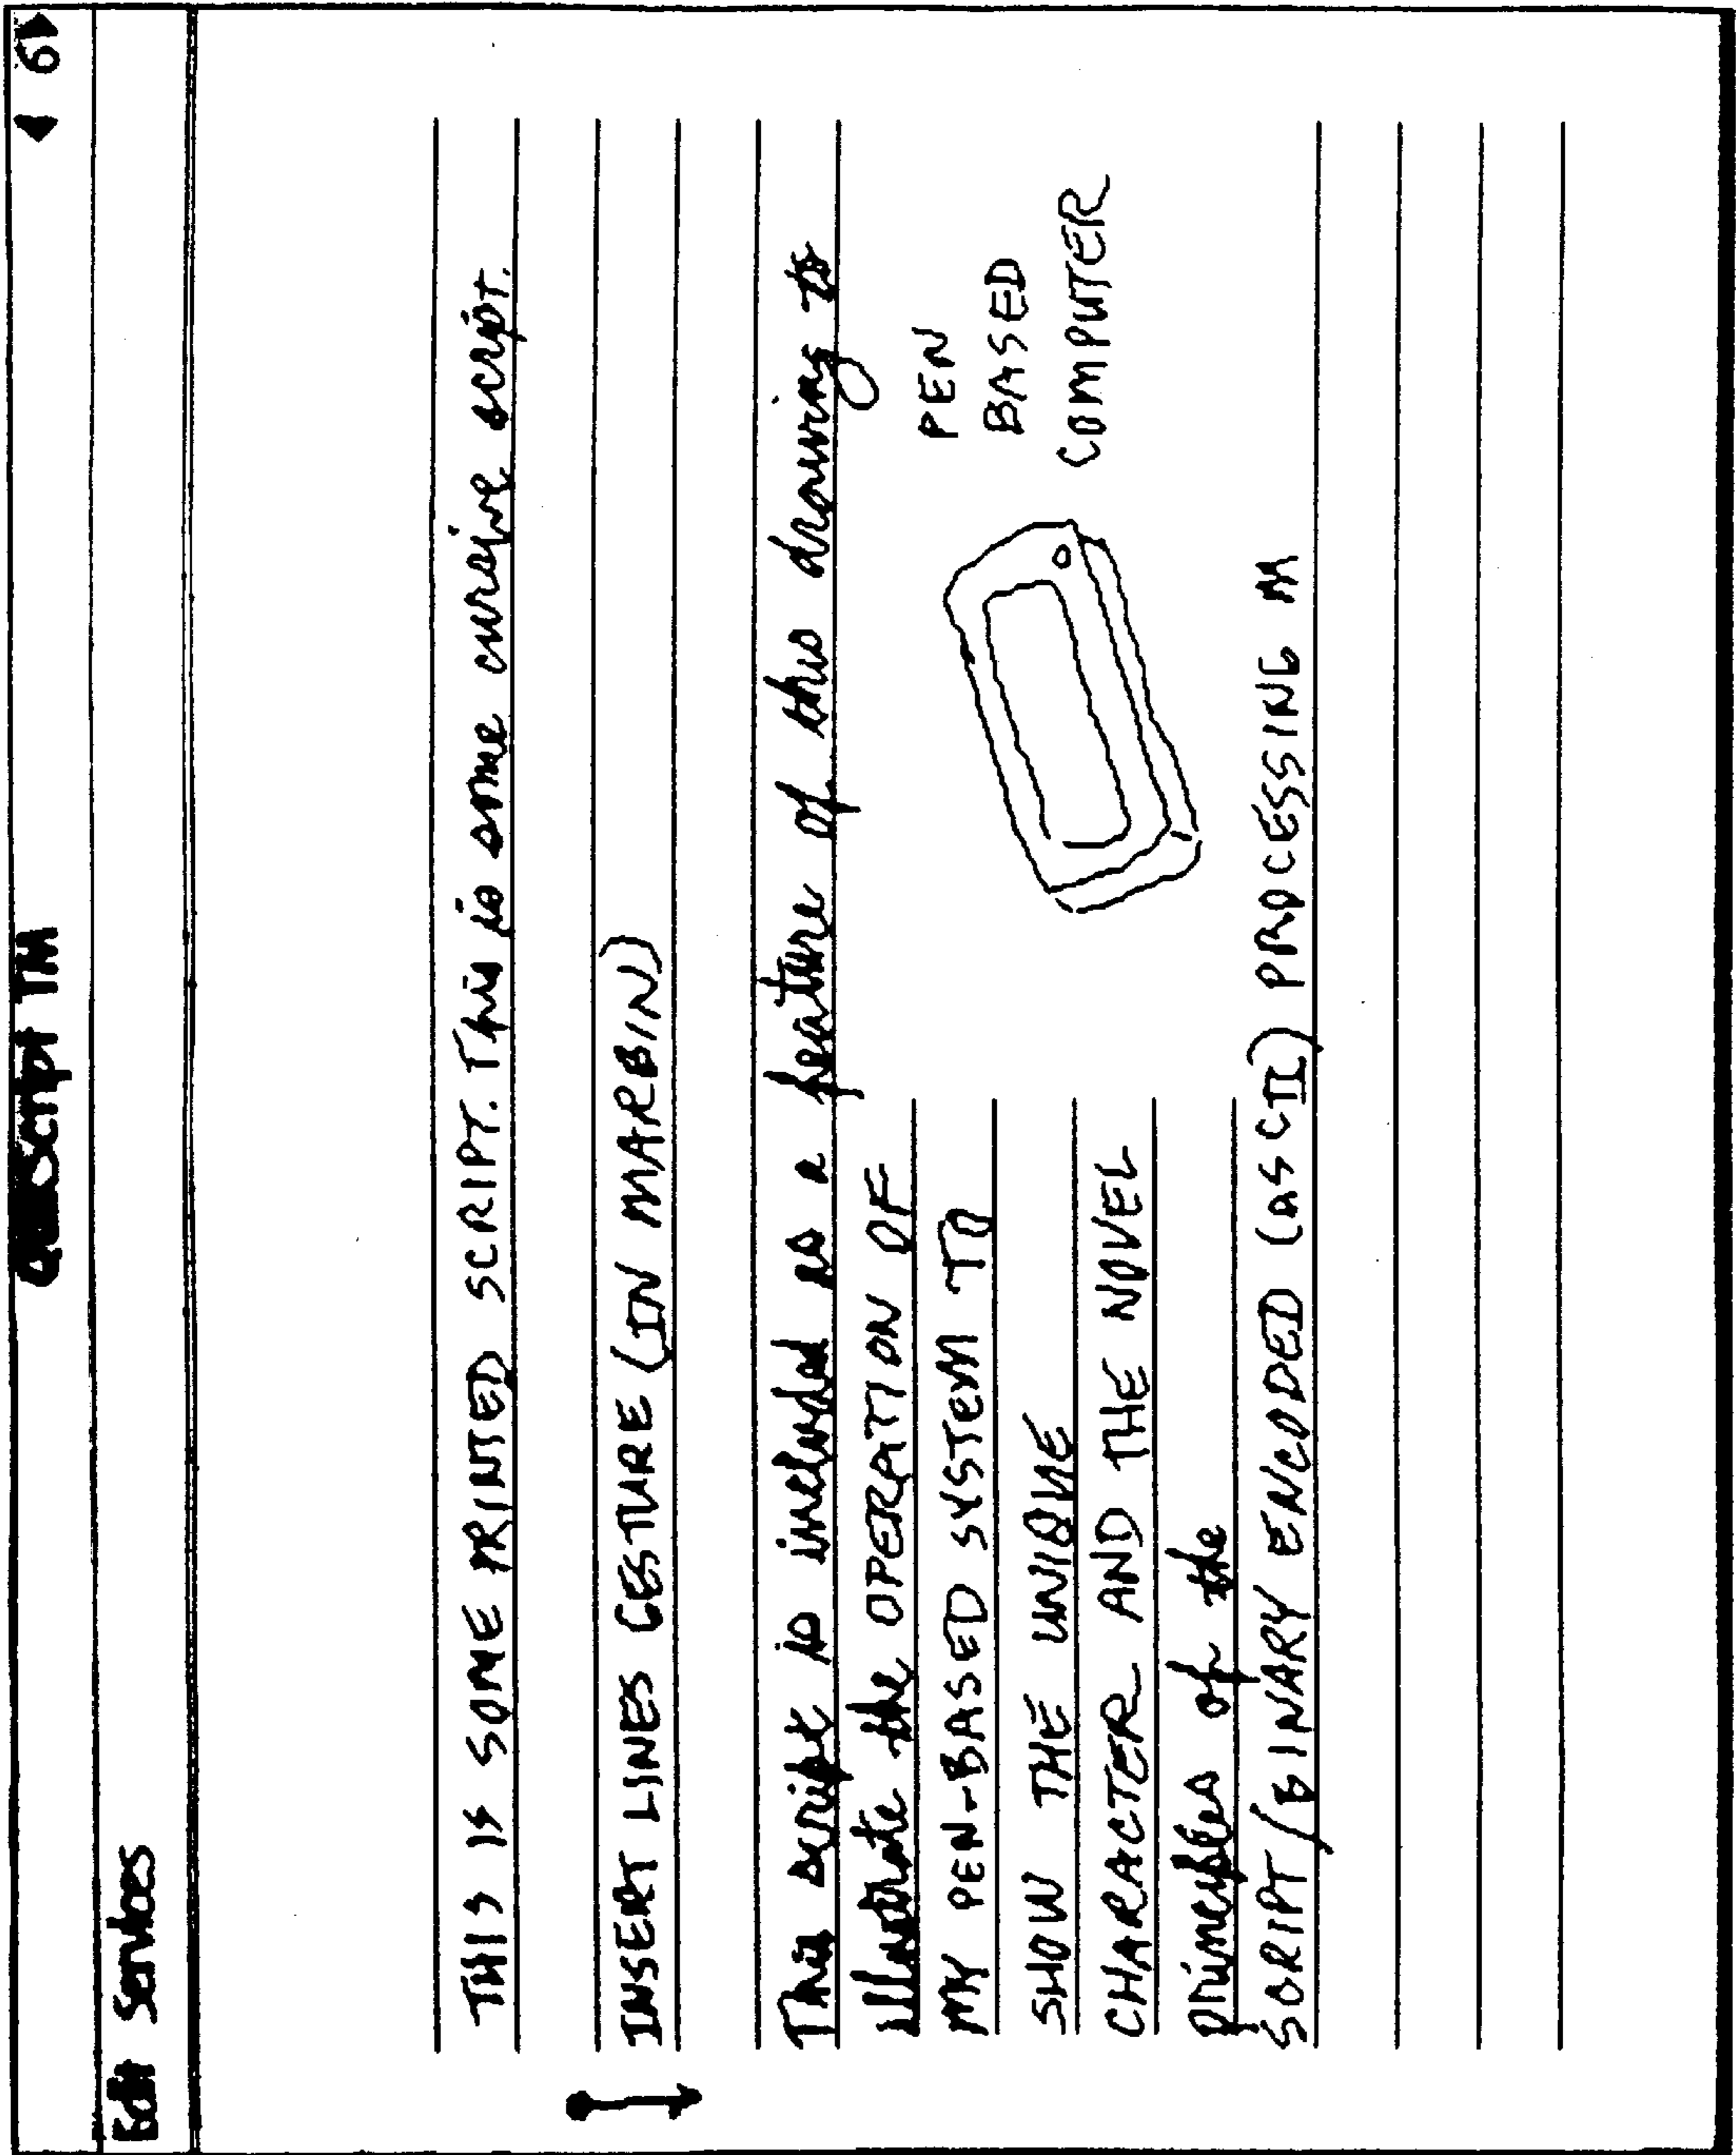 Script TM
◀ 6 ▶
Edit Services
THIS IS SOME PRINTED SCRIPT. This is some cursive script.
INSERT LINES GESTURE (IN MARGIN)
This script is included as a feature of this drawing to
illustrate the OPERATION OF
MY PEN-BASED SYSTEM TO
SHOW THE UNIQUE
CHARACTER AND THE NOVEL
principles of the
PEN
BASED
COMPUTER
SCRIPT/BINARY ENCODED (ASCII) PROCESSING M